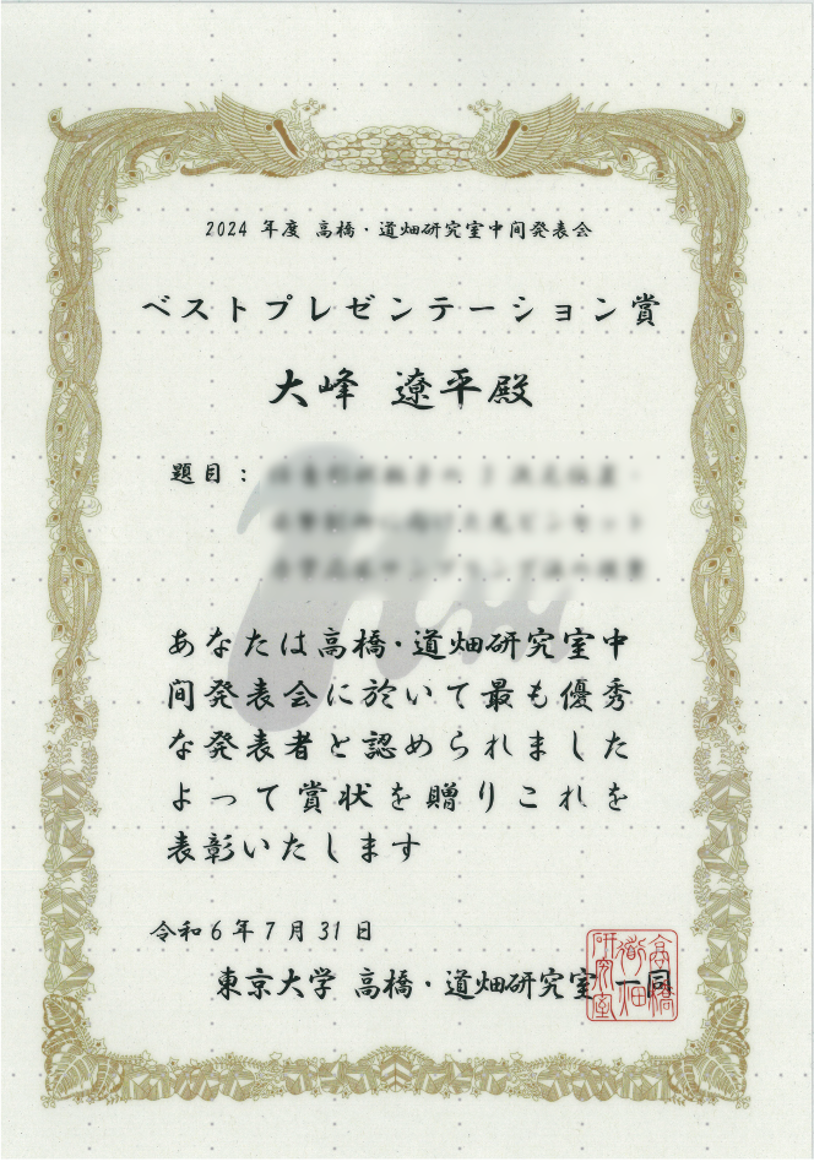 2024 年度 高橋・道畑研究室中間発表会
ベストプレゼンテーション賞
大峰 遼平殿
題目：
あなたは高橋・道畑研究室中
間発表会に於いて最も優秀
な発表者と認められました
よって賞状を贈りこれを
表彰いたします
令和6年7月31日
東京大学 高橋・道畑研究室 一同
高橋
道畑
研究室